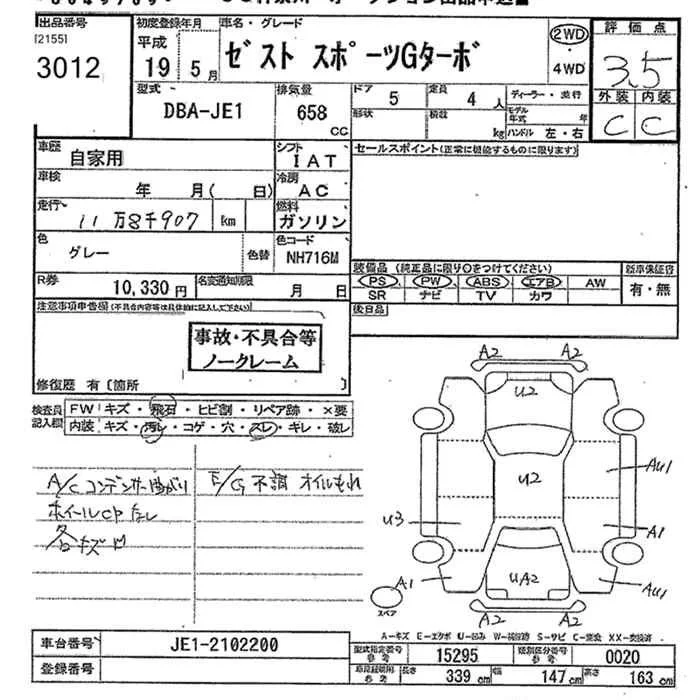 出品番号
[2155]
3012
初度登録年月
平成
19 5月
車名・グレード
ゼスト スポーツGターボ
2WD
・
4WD
評価点
3.5
外装 内装
C C
型式
DBA-JE1
排気量
658
CC
ドア
5
定員
4人
ディーラー・並行
形状
積載
kg
モデル年式
年
ハンドル 左・右
車歴
自家用
シフト
IAT
セールスポイント(正常に機能するものに限ります)
車検
年 月( 日)
冷房
AC
走行
11万8千907 km
燃料
ガソリン
色
グレー
色替
色コード
NH716M
装備品(純正品に限り○をつけてください)
新車保証書
PS PW ABS エアB AW
SR ナビ TV カワ
有・無
R券
10,330円
名変通知期限
月 日
後日品
注意事項申告欄(不具合内容等は具体的に記入して下さい)
事故・不具合等
ノークレーム
修復歴 有〔箇所 〕
検査員
記入欄
FW キズ・飛石・ヒビ割・リペア跡・×要
内装 キズ・汚レ・コゲ・穴・スレ・キレ・破レ
A/Cコンデンサー曲がり
E/G不調 オイルもれ
ホイールCPなし
各キズ凹
A2 A2
U2
AU1
U2
U3
A1
UA2
A1
AU1
スペア
A2 A2
A-キズ E-エクボ U-凹み W-補修跡 S-サビ C-腐食 XX-交換済
車台番号
JE1-2102200
登録番号
型式指定番号
参考
15295
類別区分番号
参考
0020
参考
長さ
339 cm
幅
147 cm
高さ
163 cm